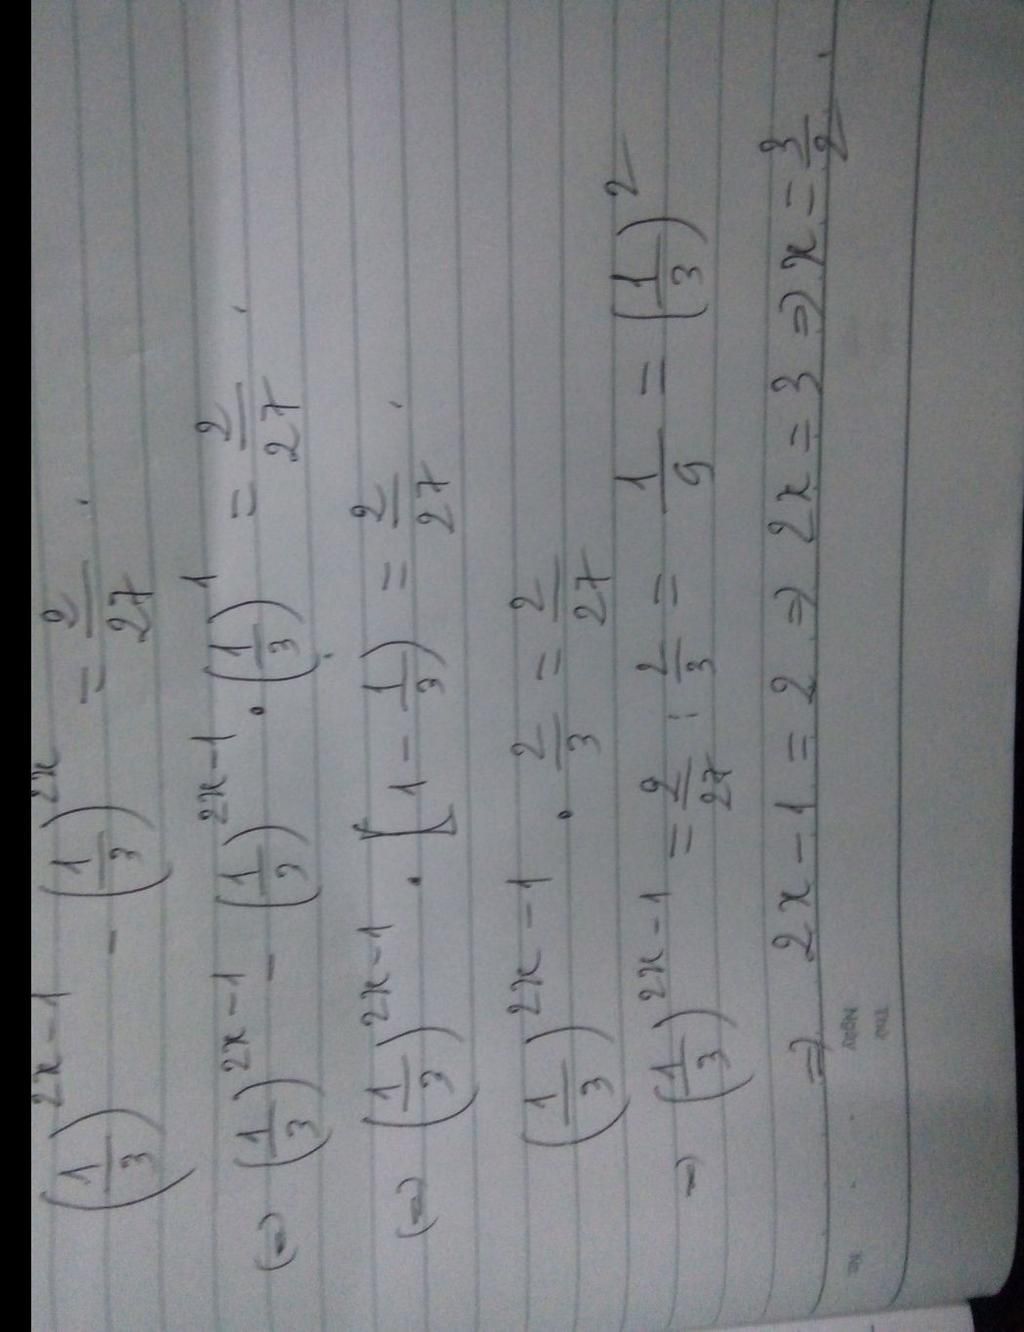 (1/3)^{2x-1} - (1/3)^{2x} = 2/27 .
(=) (1/3)^{2x-1} - (1/3)^{2x-1} . (1/3)^1 = 2/27 .
(=) (1/3)^{2x-1} . [1 - 1/3) = 2/27 .
(1/3)^{2x-1} . 2/3 = 2/27
=) (1/3)^{2x-1} = 2/27 : 2/3 = 1/9 = (1/3)^2
=) 2x-1 = 2 => 2x = 3 => x = 3/2 .
Thứ
Ngày
No.